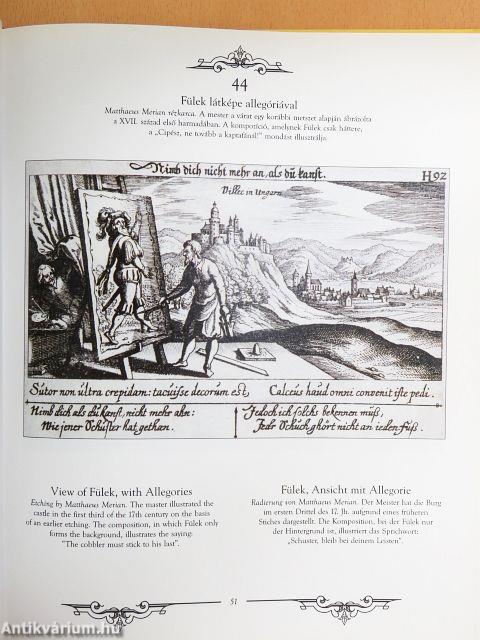 44
Fülek látképe allegóriával
Matthaeus Merian rézkarca. A mester a várat egy korábbi metszet alapján ábrázolta
a XVII. század első harmadában. A kompozíció, amelynek Fülek csak háttere,
a „Cipész, ne tovább a kaptafánál!" mondást illusztrálja.
Nimb dich nicht mehr an, als dü kanst.
H92
Villec in Ungarn
Sutor non ultra crepidam: tacuisse decorum est,
Calceus haud omni convenit iste pedi.
Nimb dich als dü kanst, nicht mehr ahn:
Wie jener Schüster hat gethan.
Jedoch ich solchs bekennen müß,
Jedr Schüch ghört nicht an ieden füß.
View of Fülek, with Allegories
Etching by Matthaeus Merian. The master illustrated the
castle in the first third of the 17th century on the basis
of an earlier etching. The composition, in which Fülek only
forms the background, illustrates the saying:
"The cobbler must stick to his last".
Fülek, Ansicht mit Allegorie
Radierung von Matthaeus Merian. Der Meister hat die Burg
im ersten Drittel des 17. Jh. aufgrund eines früheren
Stiches dargestellt. Die Komposition, bei der Fülek nur
der Hintergrund ist, illustriert das Sprichwort:
„Schuster, bleib bei deinem Leisten".
51
Antikvárium.hu